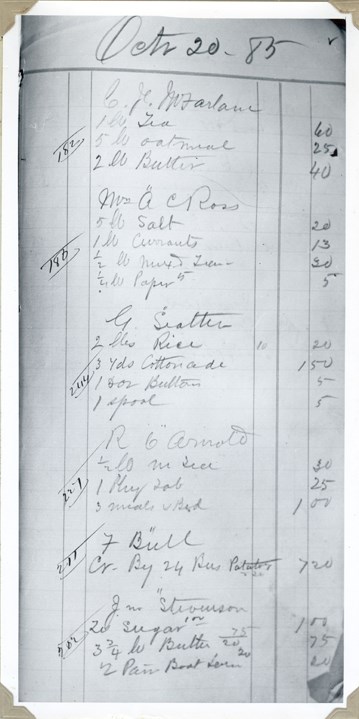 Octr 20 - 85
C. H. McFarlane
1 lb Tea 60
182 5 lb oatmeal 25
2 lb Butter 40
Mrs "A" C Ross
5 lb Salt 20
1 lb Currants 13
186 ½ lb mixed Tea 30
¼ lb Paper 5
G Seatter
2 lbs Rice 10 20
3 yds Cottonade 1 50
244 1 doz Buttons 5
1 spool 5
R "C" Arnold
½ lb m Tea 30
227 1 Plug Tob 25
3 meals & Bed 1 00
F Bull
277 Cr. By 24 Bus Potatoes 7 20
Jno "Stevenson
20 Sugar 1 00
302 3 ¾ lb Butter 20 75
2 Pair Boot 20